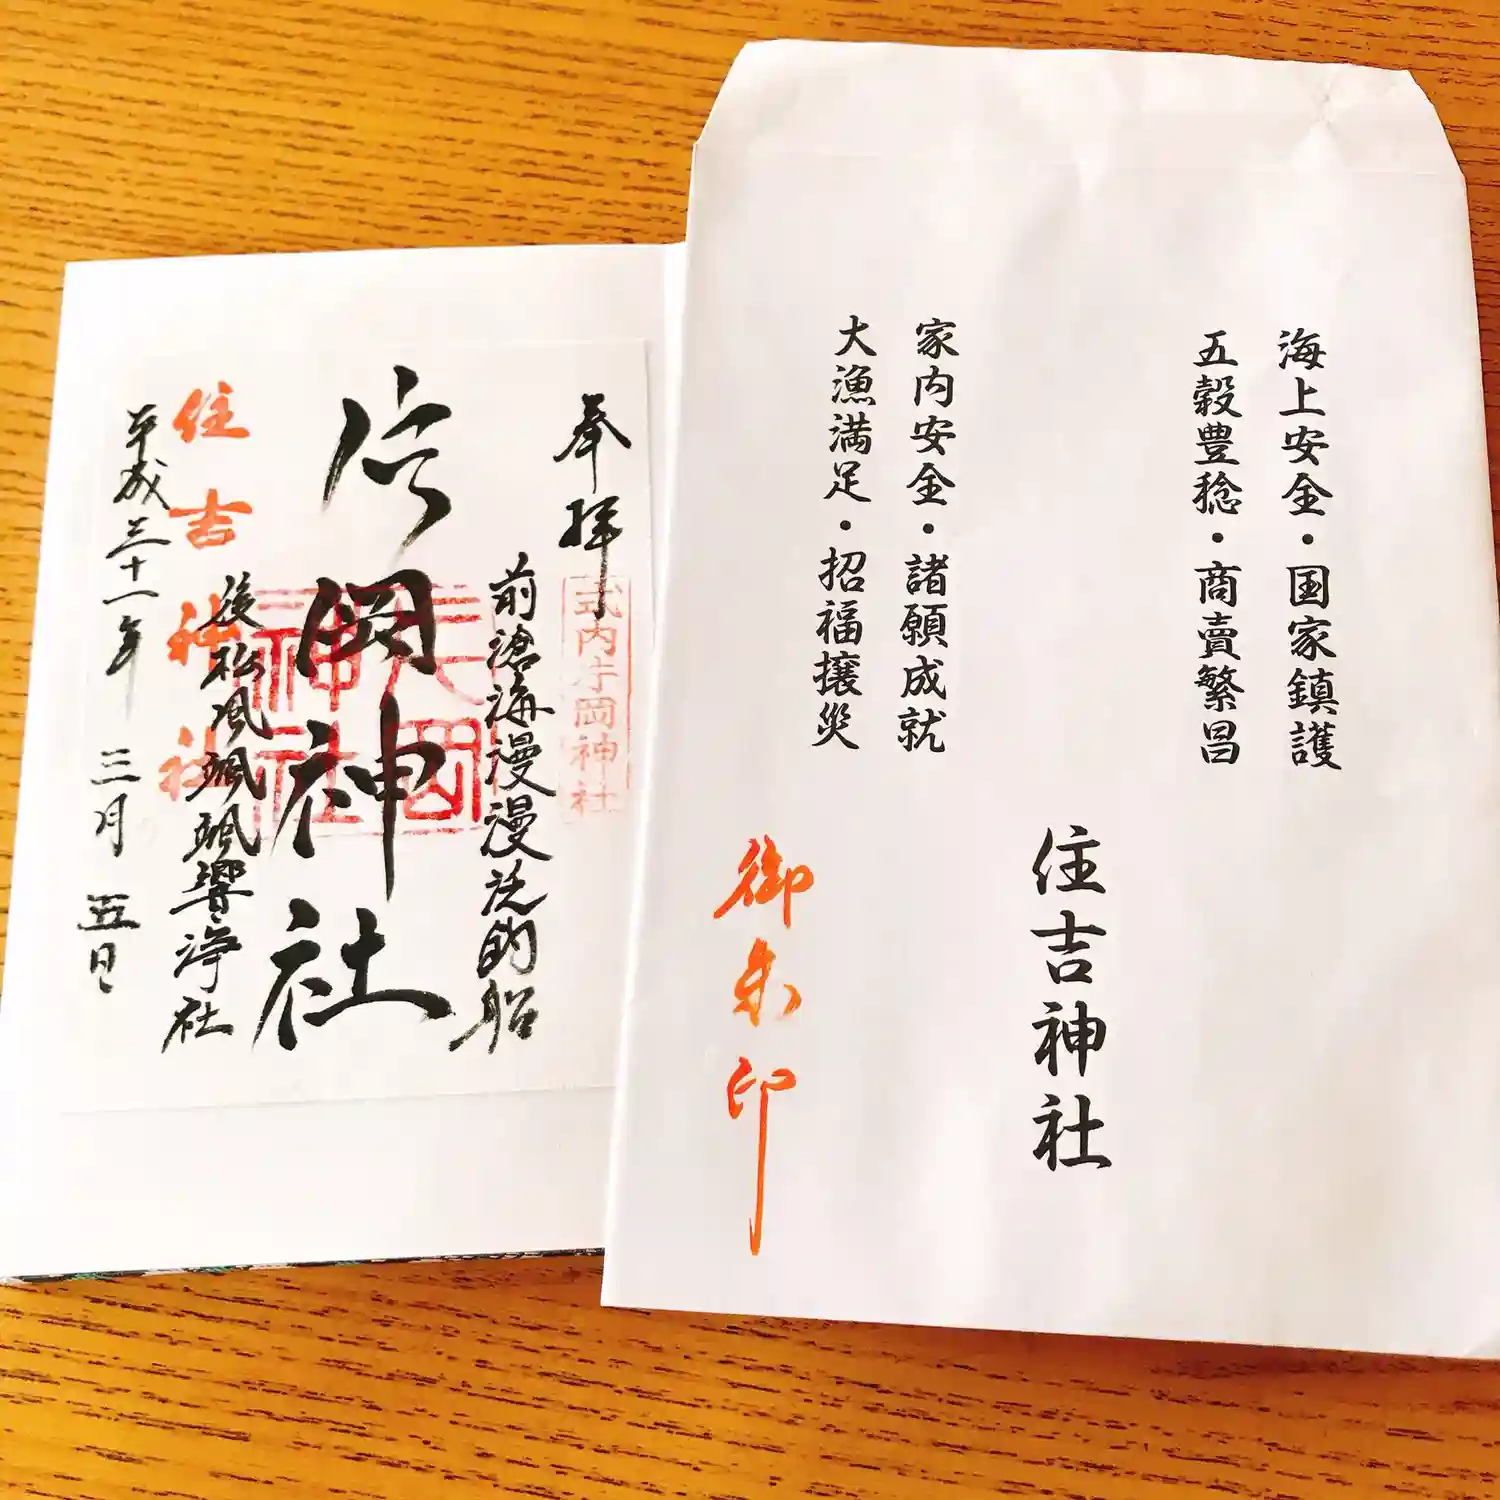 海上安全・国家鎮護
五穀豊稔・商賣繁昌
住吉神社
家内安全・諸願成就
大漁満足・招福攘災
御朱印
奉拝
式内片岡神社
前滄海漫漫泛釣船
片岡神社
後松風颯颯響浄社
住吉神社
平成三十一年三月五日